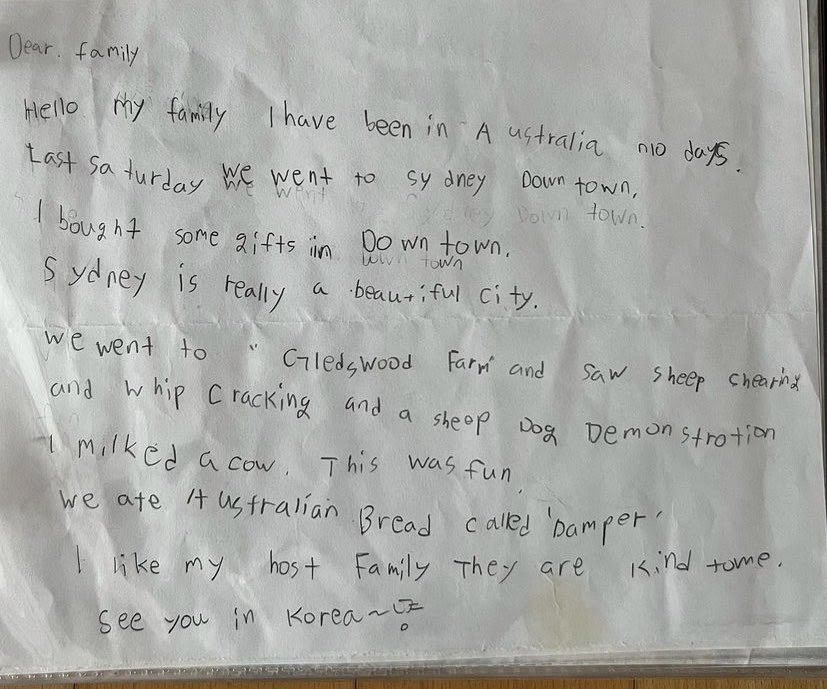 Dear. family
Hello my family I have been in Australia n10 days.
Last saturday we went to sydney Down town,
we went sydney Down town.
I bought some gifts in Down town.
Down town
Sydney is really a beautiful city.
we went to " Gledswood Farm" and saw sheep chearing
and whip cracking and a sheep Dog Demonstrotion
I milked a cow. This was fun.
we ate Australian Bread called 'Damper'
I like my host Family They are kind tome.
see you in Korea~